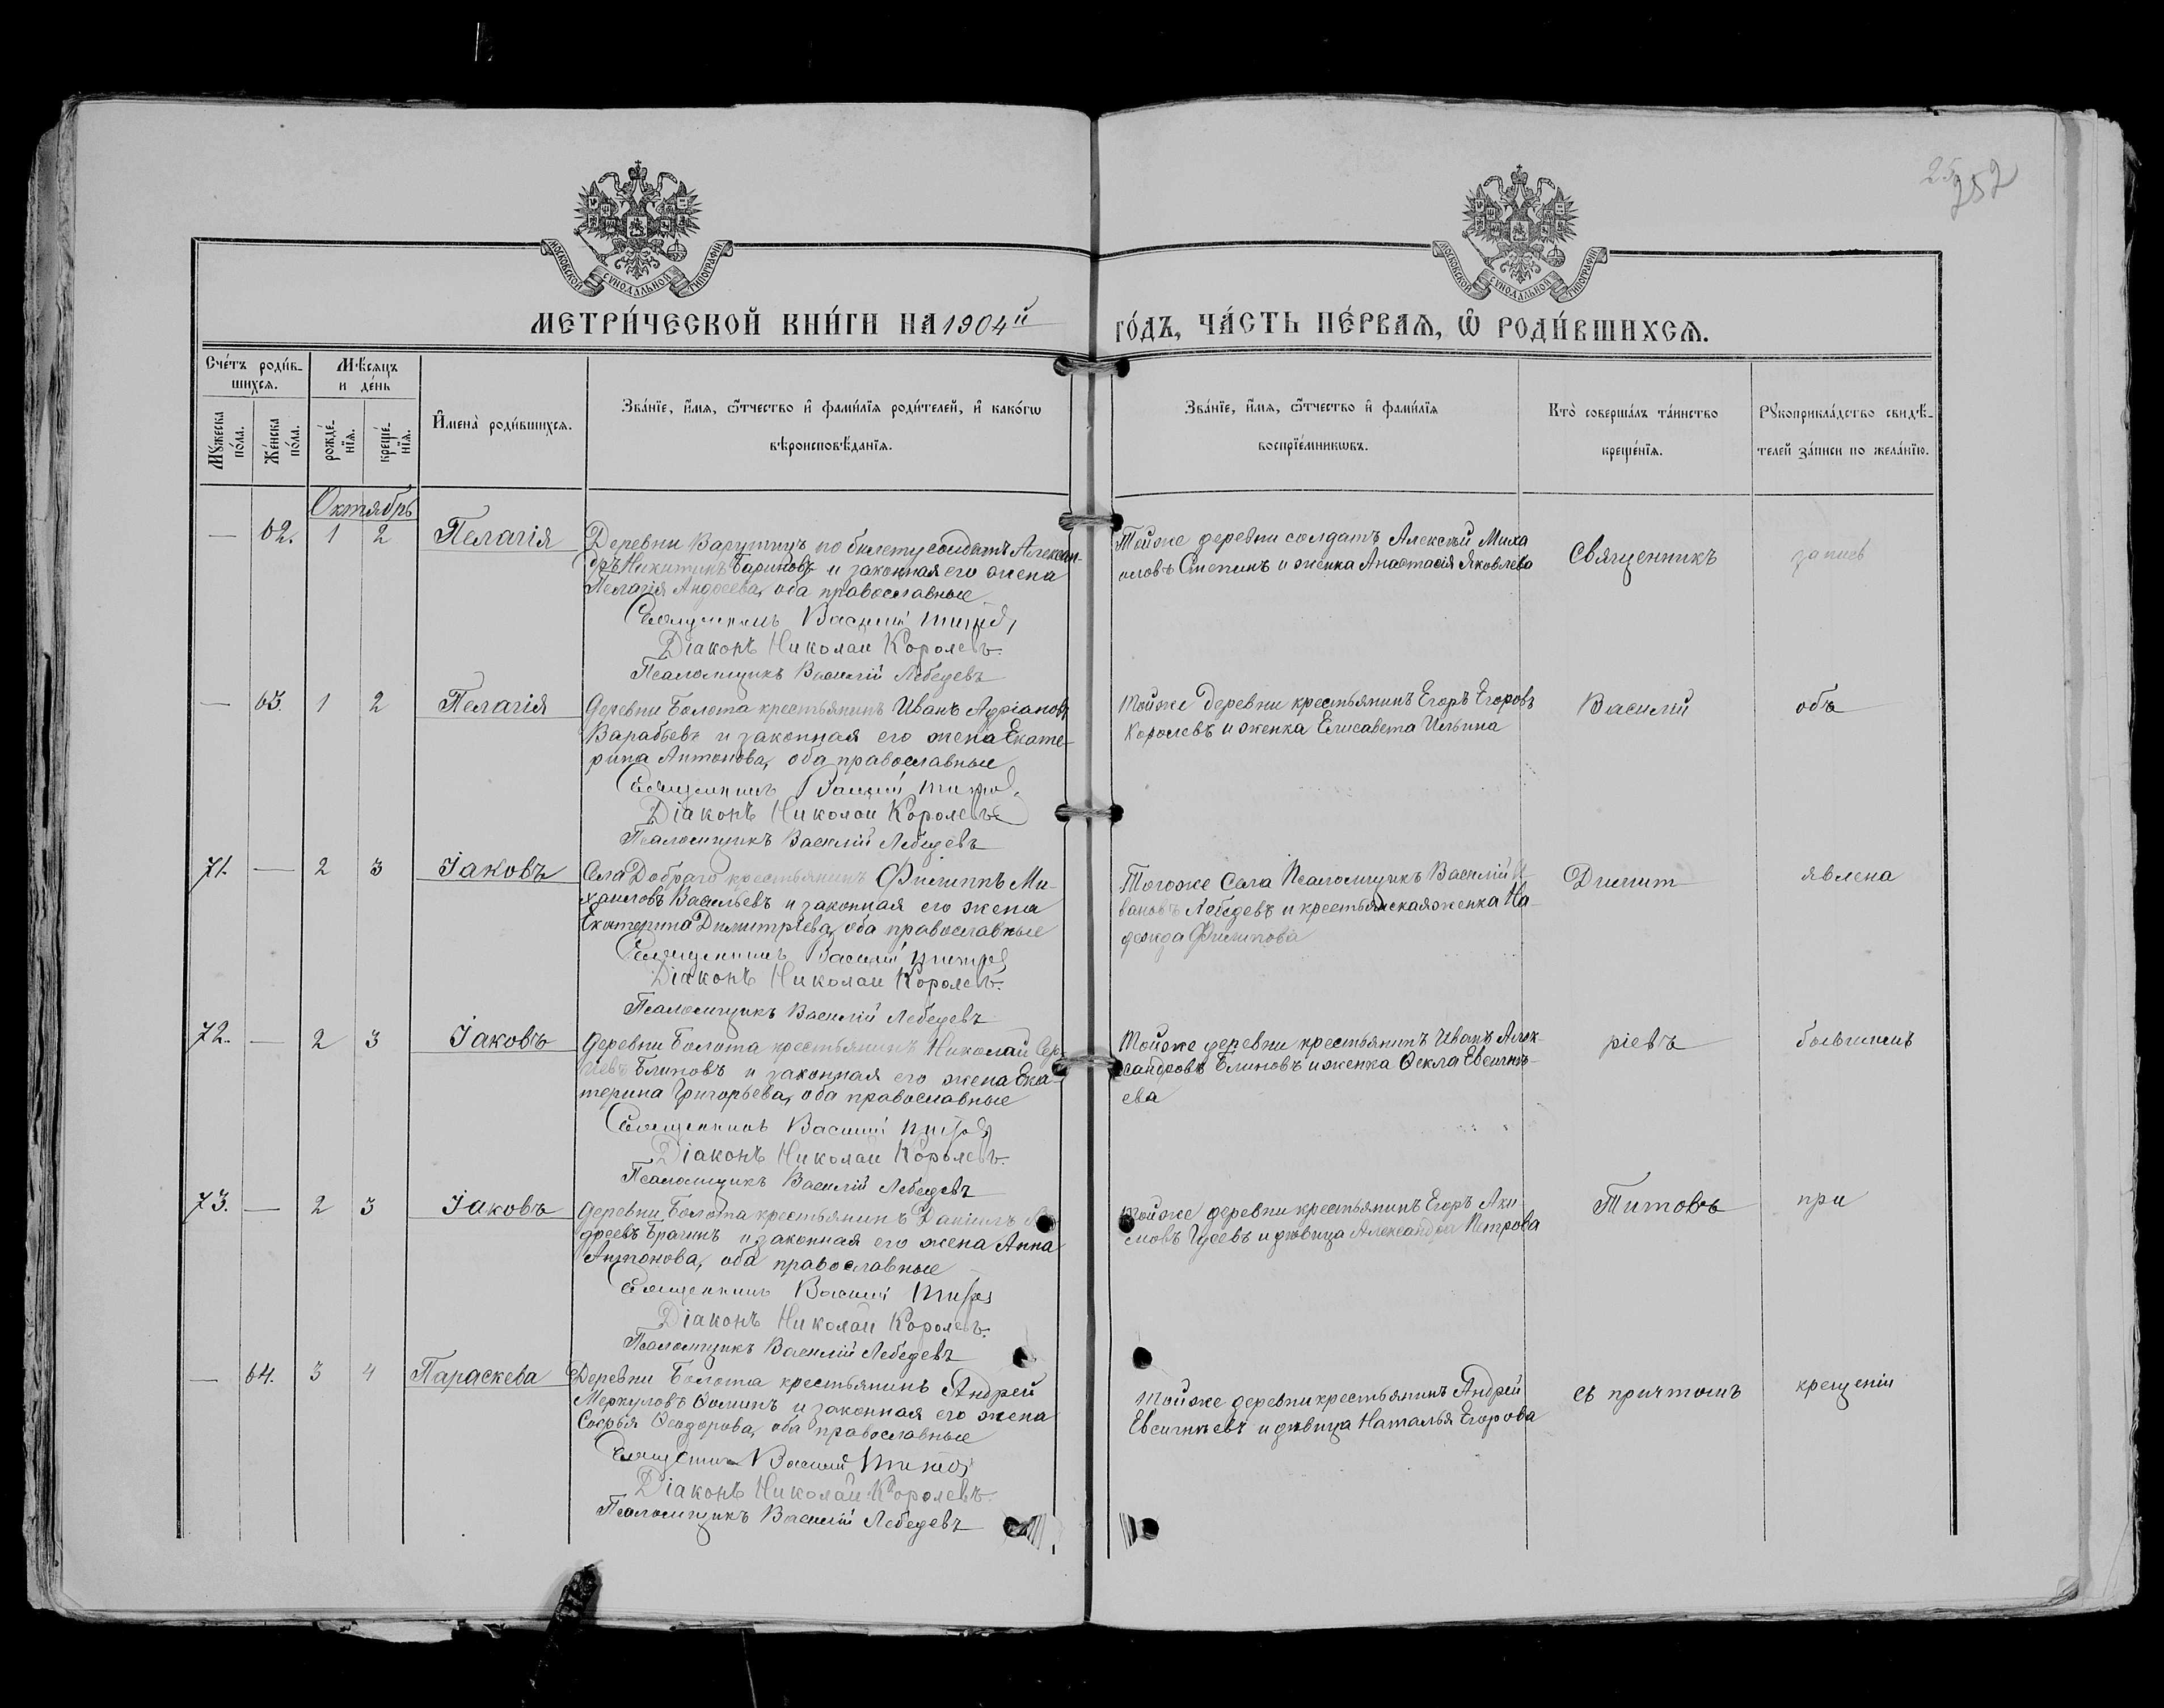 25
252
МОСКОВСКОЙ СѴНОДАЛЬНОЙ ТИПОГРАФІИ
МОСКОВСКОЙ СѴНОДАЛЬНОЙ ТИПОГРАФІИ
МЕТРИ́ЧЕСКОЙ КНИ́ГИ НА 1904й
ГО́ДЪ, ЧА́СТЬ ПЕ́РВАѦ, Ѿ РОДИ́ВШИХСѦ.
Сче́тъ роди́вшихсѧ.
Мꙋ́жеска по́ла.
Же́нска по́ла.
Мѣ́сѧцъ и де́нь
рожде́нїѧ.
креще́нїѧ.
И҆мена̀ роди́вшихсѧ.
Зва́нїе, и҆́мѧ, ѻ҆́тчество и҆ фамі́лїѧ роди́телей, и҆ како́гѡ
вѣроисповѣ́данїѧ.
Зва́нїе, и҆́мѧ, ѻ҆́тчество и҆ фамі́лїѧ
воспрїе́мникѡвъ.
Кто̀ соверша́лъ та́инство
креще́нїѧ.
Рꙋкоприкла́дство свидѣ́-
телей за́писи по жела́нїю.
Октябрь
— 62. 1 2 Пелагія
Деревни Варутинъ по билету солдатъ Алексан-
дръ Никитинъ Бариновъ и законная его жена
Пелагія Андреева, оба православные
Священникъ Василий Титовъ
Діаконъ Николай Королевъ.
Псаломщикъ Василій Лебедевъ
Тойже деревни солдатъ Алексѣй Миха
иловъ Степинъ и женка Анастасія Яковлева
Священникъ
запись
— 63. 1 2 Пелагія
Деревни Болота крестьянинъ Иванъ Адріановъ
Варабьевъ и законная его жена Екате-
рина Антонова, оба православные
Священникъ Василий Титовъ
Діаконъ Николай Королевъ
Псаломщикъ Василій Лебедевъ
Тойже деревни крестьянинъ Егоръ Егоровъ
Королевъ и женка Елисавета Ильина
Василий
объ
71. — 2 3 Іаковъ
Села Добраго крестьянинъ Филиппъ Ми-
хаиловъ Васильевъ и законная его жена
Екатерина Димитріева, оба православные
Священникъ Василий Титовъ
Діаконъ Николай Королевъ.
Псаломщикъ Василій Лебедевъ
Тогоже Села Псаломщикъ Василій И-
вановъ Лебедевъ и крестьянская женка На-
дежда Филипова
Димит
явлена
72. — 2 3 Іаковъ
Деревни Болота крестьянинъ Николай Сер-
Блиновъ и законная его жена Ека-
терина Григорьева, оба православные
Священникъ Василий Титовъ
Діаконъ Николай Королевъ.
Псаломщикъ Василій Лебедевъ
Тойже деревни крестьянинъ Иванъ Алек-
сандровъ Блиновъ и женка Ѳекла Евсигнѣ-
ева
ріевъ
бывшимъ
73. — 2 3 Іаковъ
Деревни Болота крестьянинъ Даніилъ
дреевъ Брагинъ и законная его жена Анна
Антонова, оба православные
Священникъ Василий Титовъ
Діаконъ Николай Королевъ.
Псаломщикъ Василій Лебедевъ
Тойже деревни крестьянинъ Егоръ Аки
мовъ Гусевъ и дѣвица Александра Петрова
Титовъ
при
— 64. 3 4 Параскева
Деревни Болота крестьянинъ Андрей
Меркуловъ Ѳоминъ и законная его жена
Софья Ѳеодорова, оба православные
Священникъ Василий Титовъ
Діаконъ Николай Королевъ.
Псаломщикъ Василій Лебедевъ
Тойже деревни крестьянинъ Андрей
Евсигнѣевъ и дѣвица Наталья Егорова
съ причтомъ
крещеніи